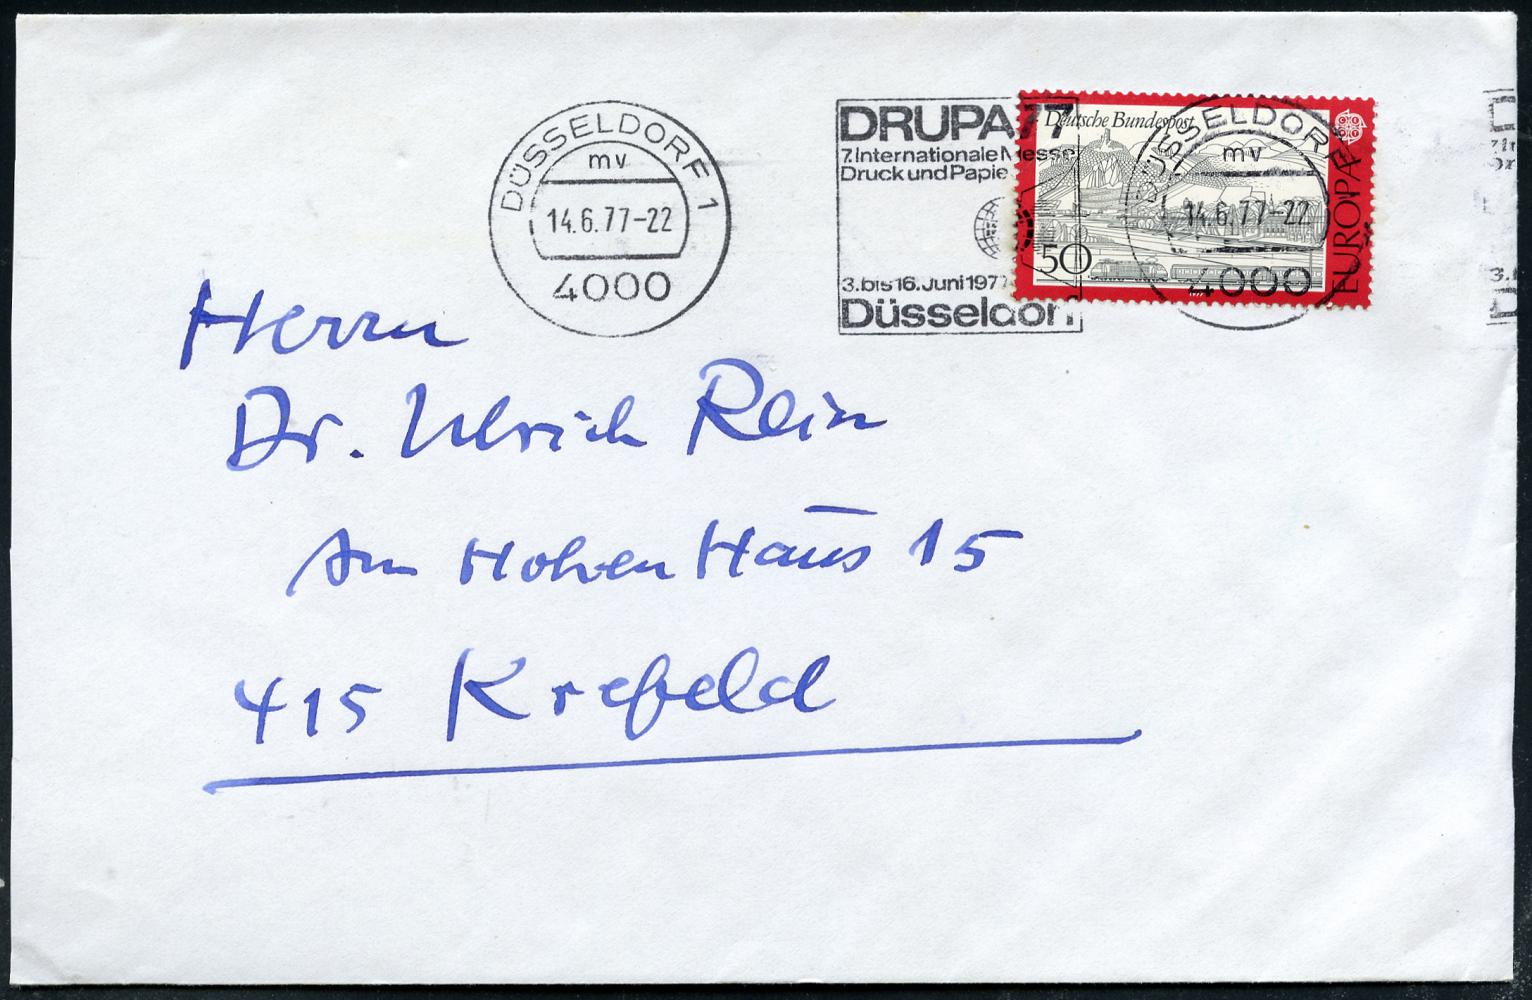 DÜSSELDORF 1
mv
14.6.77-22
4000
DRUPA 77
7. Internationale Messe
Druck und Papie
3. bis 16. Juni 1977
Düsseldorf
Deutsche Bundespost
50
EUROPA
DÜSSELDORF
mv
14.6.77-22
4000
Herrn
Dr. Ulrich Rein
Am Hohen Haus 15
415 Krefeld